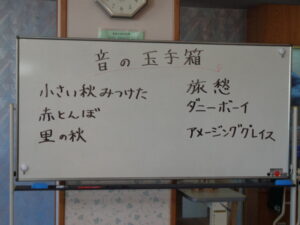 音の玉手箱
小さい秋みつけた
赤とんぼ
里の秋
旅愁
ダニーボーイ
アメージンググレイス